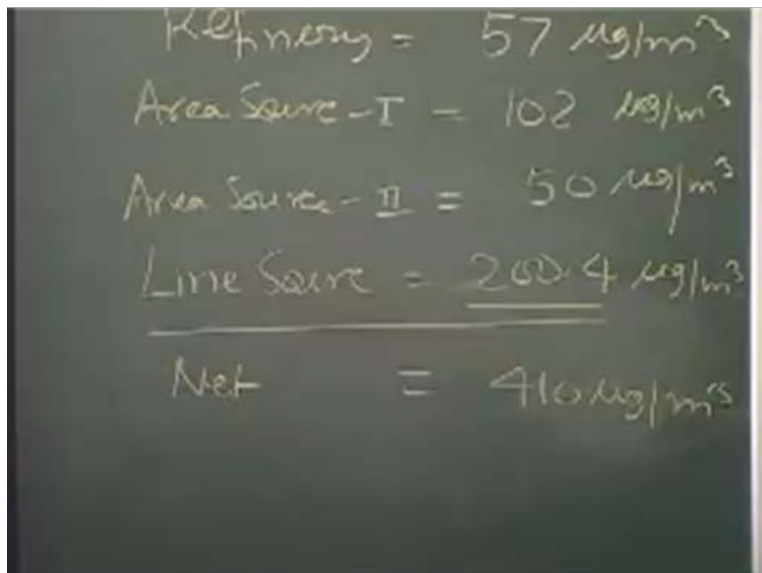 Refinery = 57 µg/m³
Area Source-I - 102 µg/m³
Area Source-II = 50 µg/m³
Line Source = 200.4 µg/m³
Net = 410 µg/m³